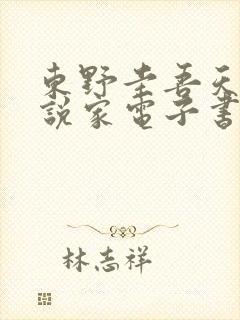 東野圭吾天
說家電子書
林志祥